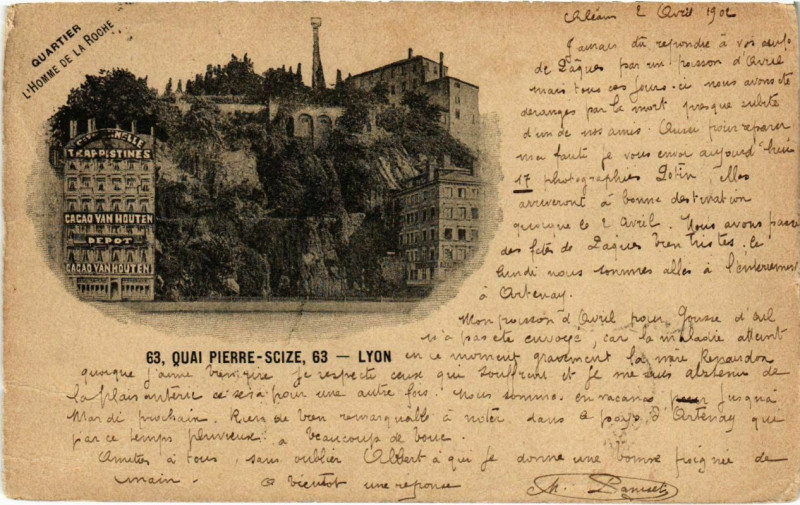 QUARTIER
L'HOMME DE LA ROCHE
TRAPPISTINES
CACAO VAN HOUTEN
DEPOT
CACAO VAN HOUTEN
63, QUAI PIERRE-SCIZE, 63 — LYON
2 Avril 1902
J'aurais dû repondre à vos oeufs
de Pâques par un poisson d'Avril
mais tous ces jours-ci nous avons ete
deranges par la mort presque subite
d'un de nos amis. Aussi pour reparer
ma faute je vous envoi aujourd'hui
17 photographies Potin, elles
arriveront à bonne destination
quoique le 2 Avril. Nous avons passé
des fêtes de Pâques bien tristes. Ce
lundi nous sommes allés à l'enterrement
à Artenay.
Mon poisson d'Avril pour Gousse d'ail
n'a pas ete envoyé, car la maladie atteint
en ce moment gravement la mère
quoique j'aime bien rire je respecte ceux qui souffrent et je me suis abstenu de
la plaisanterie ce sera pour une autre fois. Nous sommes en vacances jusqu'à
Mardi prochain. Rien de bien remarquable à noter dans le pays d'Artenay que
par ce temps pluvieux il y a beaucoup de boue.
Amitiés à tous, sans oublier Albert à qui je donne une bonne poignée de
main. A bientôt une reponse